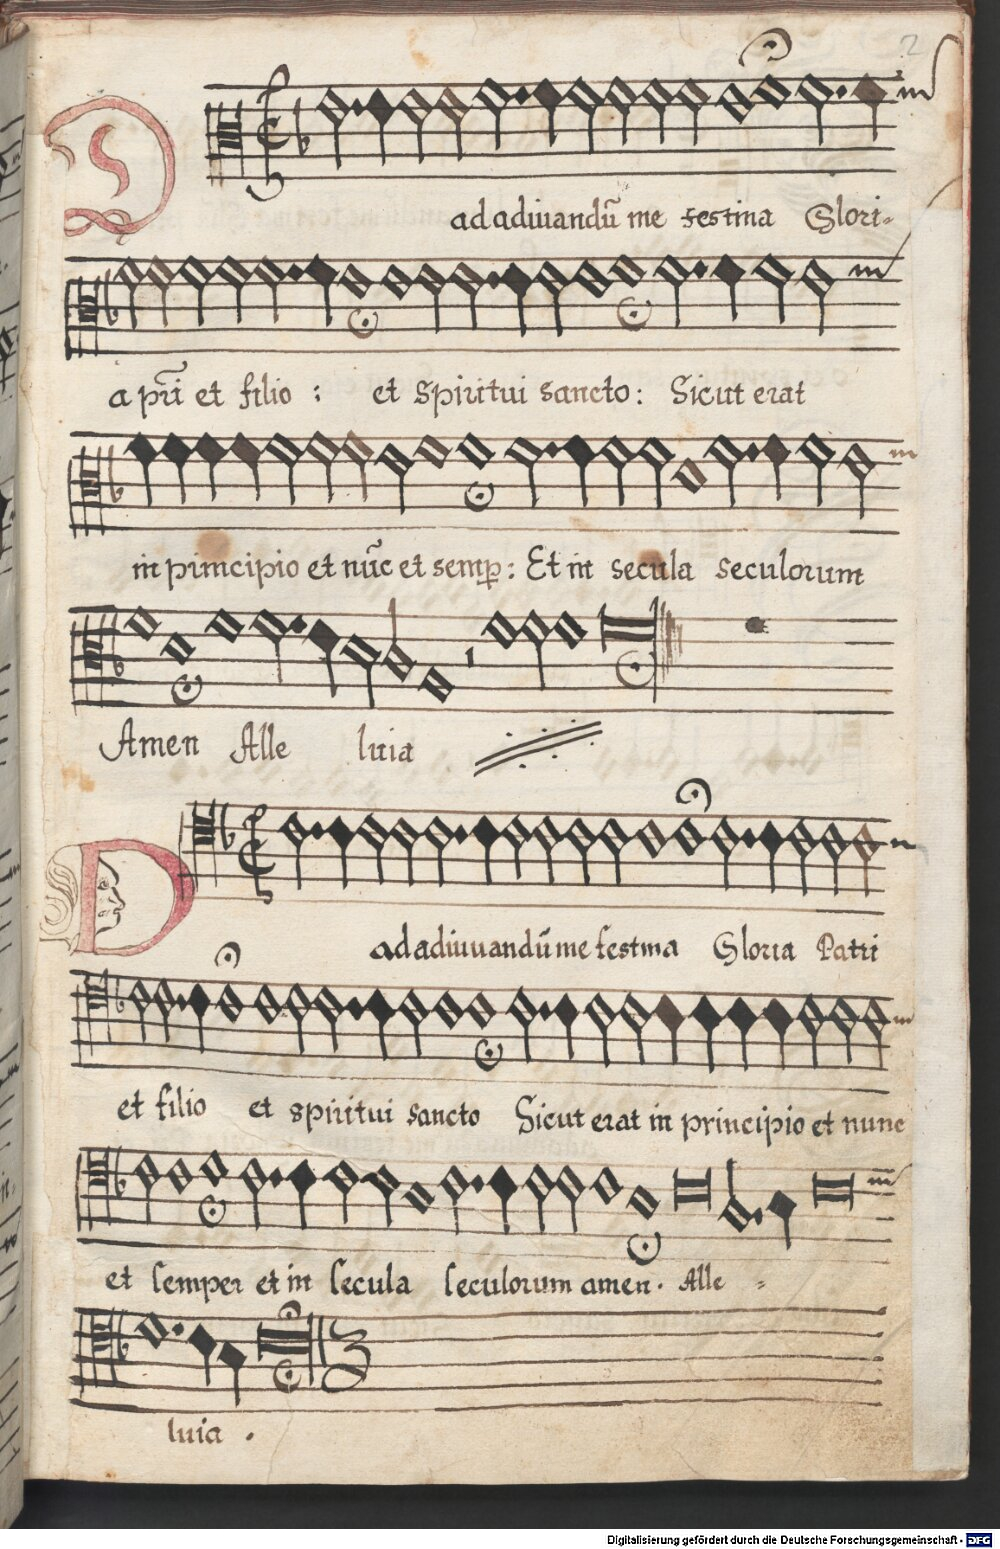 2
D
ad adiuuandũ me festina Glori-
a pr̃i et filio : et Spiritui sancto: Sicut erat
in principio et nũc et semꝑ: Et in secula seculorum
Amen Alle luia
D
ad adiuuandũ me festina Gloria Patri
et filio et spiritui sancto Sicut erat in principio et nunc
et semper et in secula seculorum amen. Alle -
luia .
Digitalisierung gefördert durch die Deutsche Forschungsgemeinschaft - DFG